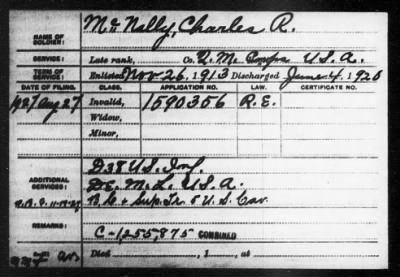 NAME OF SOLDIER: McNally, Charles R.
SERVICE: Late rank, Co. Q. M. Corps U.S.A.
TERM OF SERVICE: Enlisted Nov 26, 1913 Discharged June 4, 1920
DATE OF FILING. CLASS. APPLICATION NO. LAW. CERTIFICATE NO.
1927 Aug 27 Invalid, 1590356 R.E.
Widow,
Minor,
D 38 U.S. Inf.
ADDITIONAL SERVICES: D.E.M.L. U.S.A.
& Sup. Tr. 5 U.S. Cav.
REMARKS: C-1,255,875 COMBINED
Died , 1 , at